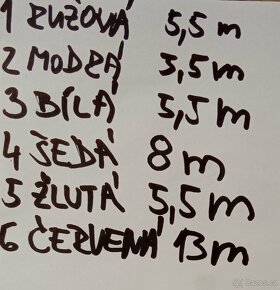 1 RŮŽOVÁ 5,5 m
2 MODRÁ 5,5 m
3 BÍLÁ 5,5 m
4 ŠEDÁ 8 m
5 ŽLUTÁ 5,5 m
6 ČERVENÁ 13 m
Bazos.cz